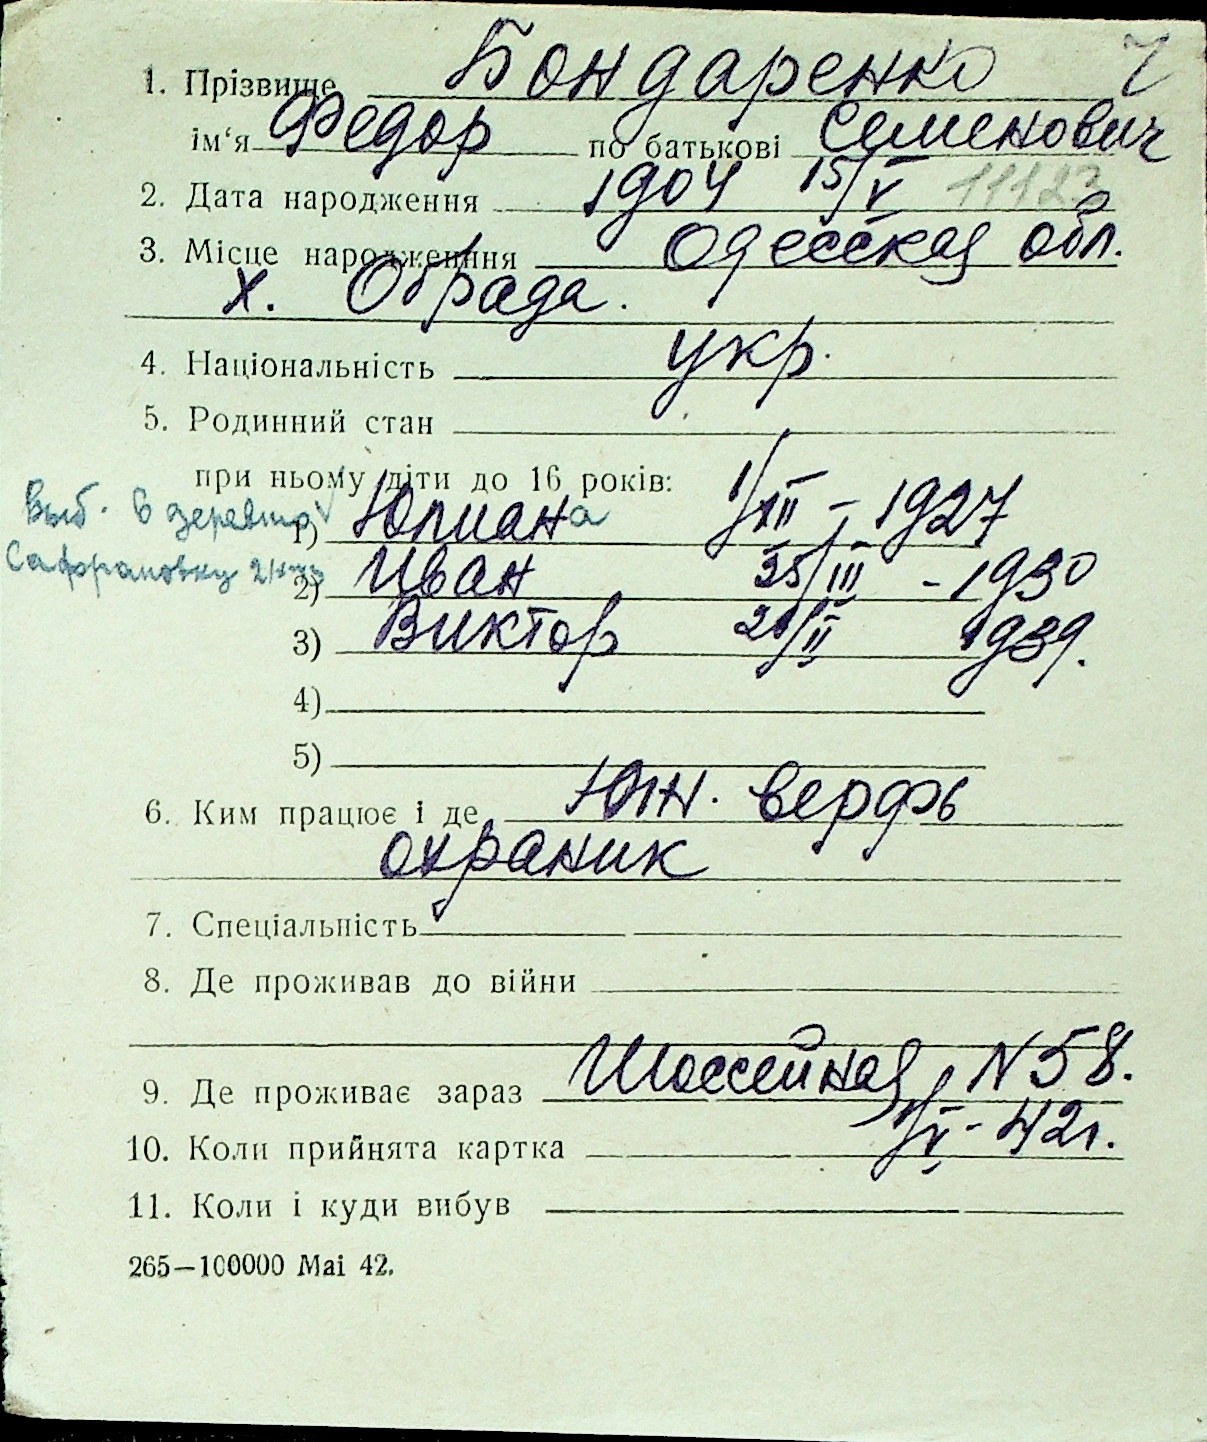 1. Прізвище Бондаренко
ім‘я Федор по батькові Семенович
2. Дата народження 1904 15/V 11123
3. Місце народження Одесская обл.
х. Отрада.
4. Національність укр.
5. Родинний стан
при ньому діти до 16 років:
Выб. в деревню 1) Юлиана 1/XII - 1927
Сафроновку 2) Иван 25/III - 1930
3) Виктор /II 1939.
4)
5)
6. Ким працює і де Юж. верфь
охраник
7. Спеціальність
8. Де проживав до війни
9. Де проживає зараз Шоссейная, N 58.
10. Коли прийнята картка /V - 42г.
11. Коли і куди вибув
265—100000 Mai 42.